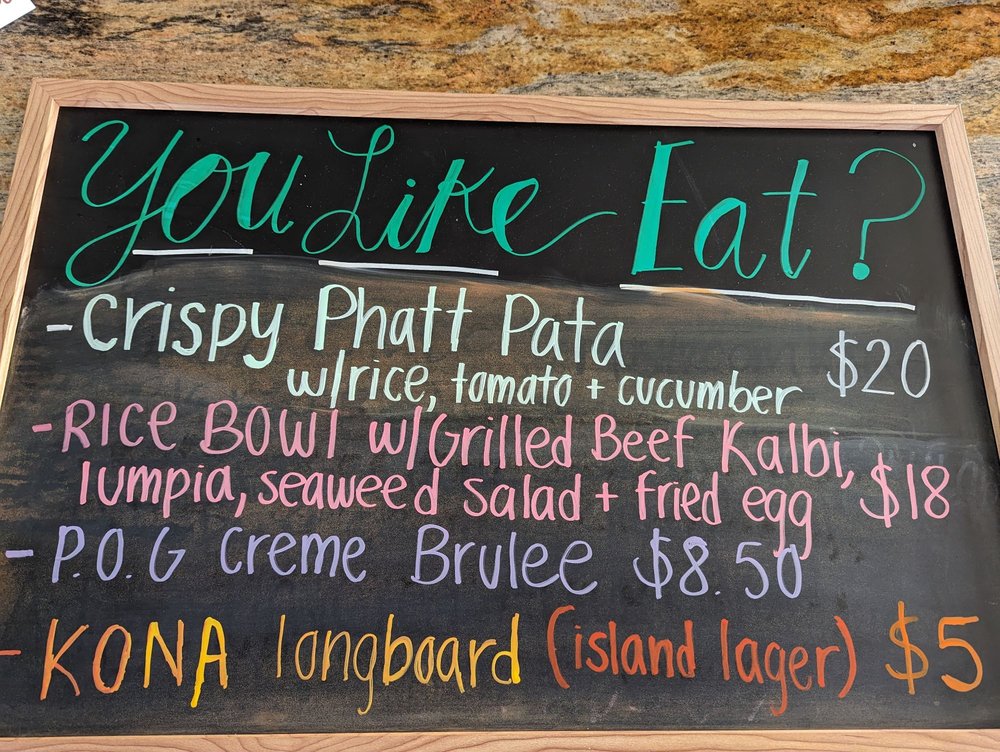 You Like Eat?
- Crispy Phatt Pata $20
w/rice, tomato + cucumber
- RICE BOWl w/Grilled Beef Kalbi,
lumpia, seaweed salad + fried egg $18
- P.O.G Creme Brulee $8.50
- KONA longboard (island lager) $5